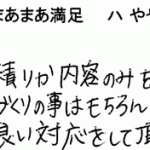 まあまあ満足　ハ やや
積りか内容のみを
づくりの事はもちろん
良い対応をして頂